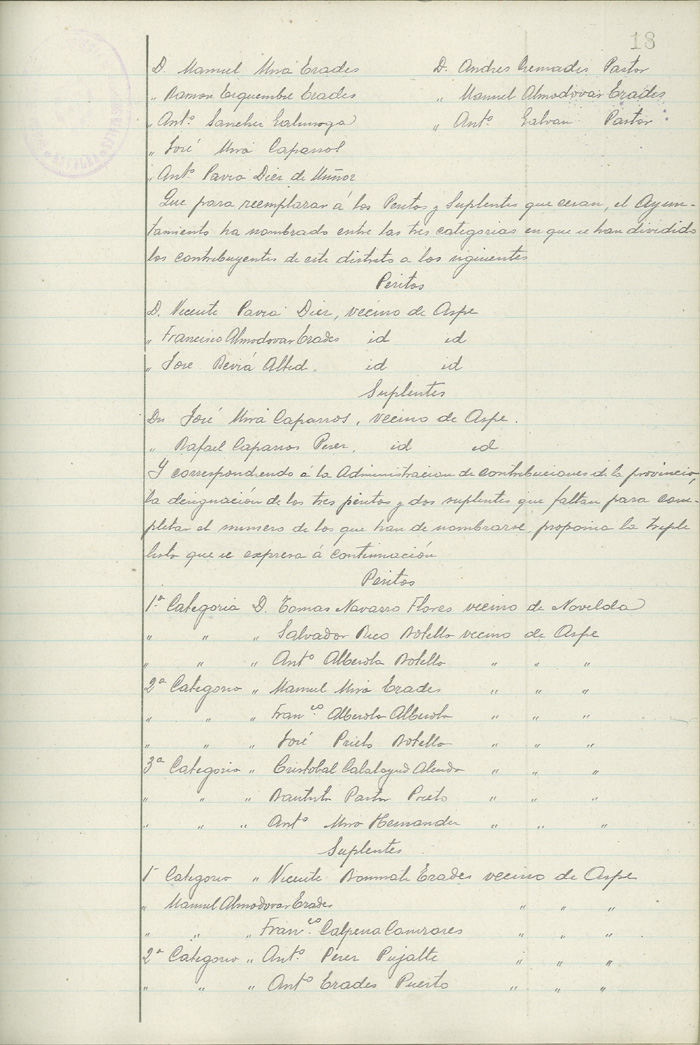 18
D. Manuel Mirá Erades D. Andres Cremades Pastor
„ Ramon Erquembre Erades „ Manuel Almodovar Erades
„ Antº Sanchez Galinsoga „ Antº Galvan Pastor
„ José Mirá Caparrol
„ Antº Pavia Dier de Muñoz
Que para reemplazar á los Peritos y Suplentes que cesan, el Ayun-
tamiento ha nombrado entre las tres categorias en que se han dividido
los contribuyentes de este distrito a los siguientes
Peritos
D. Vicente Pavia Dier, vecino de Aspe
„ Francisco Almodovar Erades id id
„ Jose Beviá Alted. id id
Suplentes
Dn José Mirá Caparros, vecino de Aspe.
„ Rafael Caparros Perez, id id
Y correspondiendo á la Administracion de contribuciones de la provincia,
la designación de los tres peritos y dos suplentes que faltan para com-
pletar el numero de los que han de nombrarse, proponia la triple
lista que se expresa á continuación
Peritos
1ª Categoria D. Tomas Navarro Flores vecino de Novelda
„ „ „ Salvador Rico Botella vecino de Aspe
„ „ „ Antº Alberola Botella „ „ „
2ª Categoria „ Manuel Mirá Erades „ „ „
„ „ „ Franco Alberola Alberola „ „ „
„ „ „ José Prieto Botella „ „ „
3ª Categoria „ Cristobal Calatayud „ „ „
„ „ „ Bautista Pastor Prieto „ „ „
„ „ „ Antº Miro Hernandez „ „ „
Suplentes
1ª Categoria „ Vicente Bonmati Erades vecino de Aspe
„ Manuel Almodovar Erades „ „ „
„ „ „ Franco Calpena Cañizares „ „ „
2ª Categoria „ Antº Perez Pujalte „ „ „
„ „ „ Antº Erades Puerto „ „ „